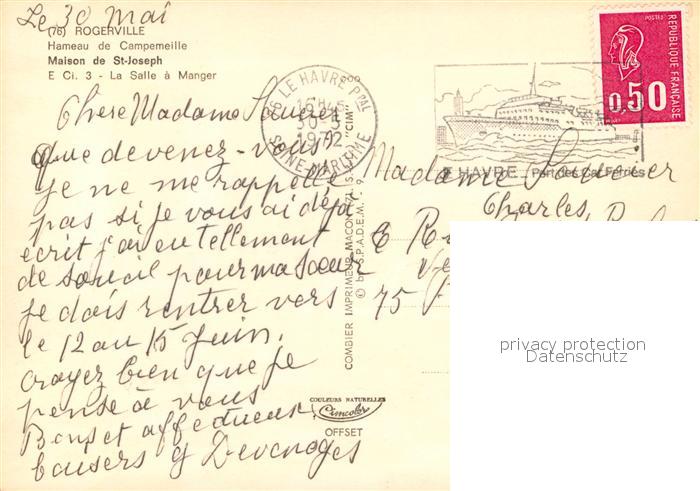 Le 30 Mai
(76) ROGERVILLE
Hameau de Campemeille
Maison de St-Joseph
E Ci. 3 - La Salle à Manger
Chere Madame
que devenez-vous?
Je ne me rappelle
pas si je vous ai déjà
écrit j'ai eu tellement
de souci pour ma Soeur
je dois rentrer vers
le 12 au 15 Juin.
croyez bien que je
pense à vous
Bons et affectueux
baisers
76 LE HAVRE Pal
16H45
30-5
1972
SEINE-MARITIME
LE HAVRE Port des Car Ferries
POSTES
REPUBLIQUE FRANÇAISE
0,50
Madame
Charles,
75
COMBIER IMPRIMEUR MACON "CIM"
© by S.P.A.D.E.M.
COULEURS NATURELLES
Cimcolor
OFFSET
privacy protection
Datenschutz